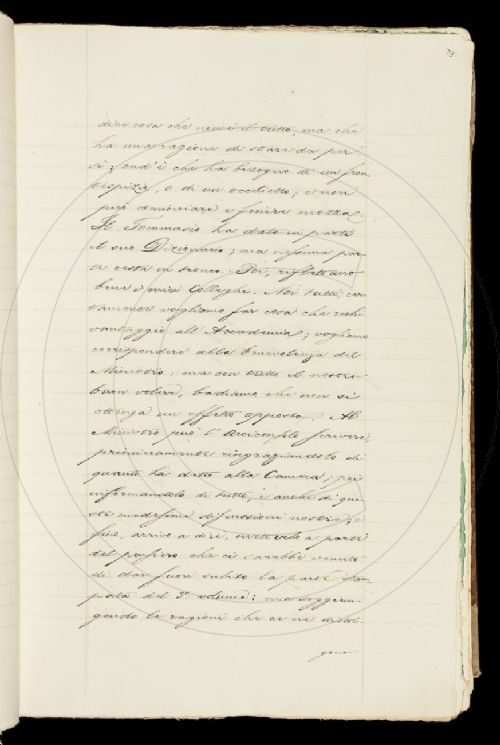 73
dice cosa che non è il tutto, ma che
ha una ragione di stare da per
sè; ond'è che ha bisogno di un fron
tespizio, o di un occhietto; e non
può cominciare e finire mozza.
Il Tommaseo ha dato in parte
il suo Dizionario; ma nessuna par
te resta in tronco. Poi, riflettano
bene i miei Colleghi. Noi tutti, cer
tamente vogliamo far cosa che rechi
vantaggio all'Accademia; vogliamo
corrispondere alla benevolenza del
Ministro; ma con tutto il nostro
buon volere, badiamo che non si
ottenga un effetto opposto. Al
Ministro può l'Arciconsolo scrivere,
primieramente ringraziandolo di
quanto ha detto alla Camera; poi
informandolo di tutto, e anche di que
ste medesime discussioni nostre;
fino, arrivo a dire, mettendolo a parte
del pensiero che ci sarebbe venuto
di dar fuori subito la parte stam
pata del 5º volume: ma soggiun
gendo le ragioni che ce ne dissua-